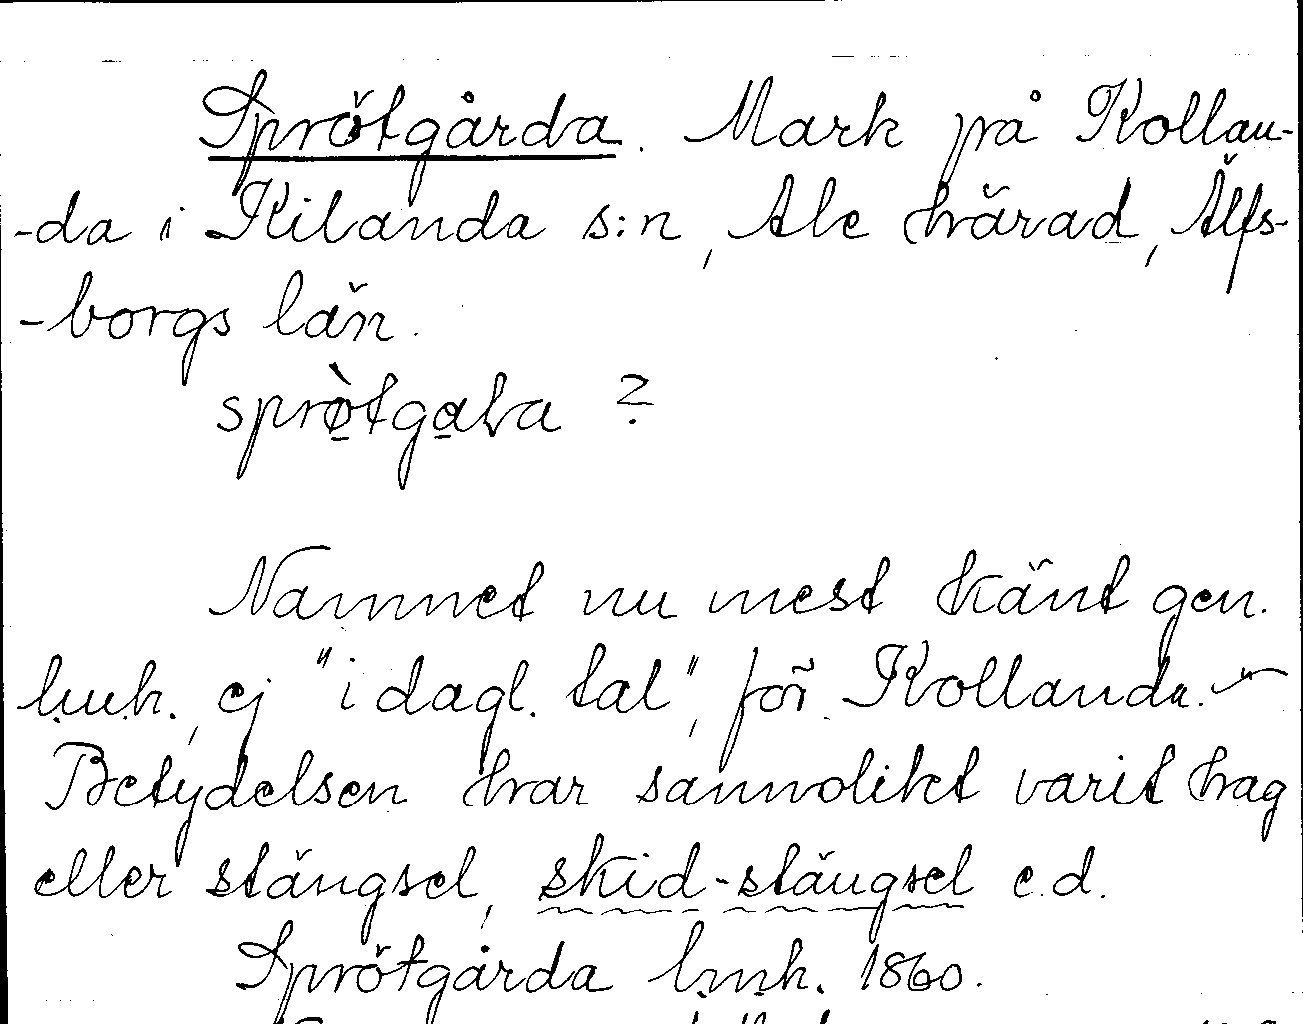 Sprötgårda. Mark på Kollan-
-da i Kilanda s:n, Ale härad, Älfs-
-borgs län.
sprò̲tga̲ɫa ?
Namnet nu mest känt gen.
l.m.h., ej "i dagl. tal", för Kollanda. —
Betydelsen har sannolikt varit hag
eller stängsel, skid-stängsel e.d.
Sprötgårda l.m.h. 1860.